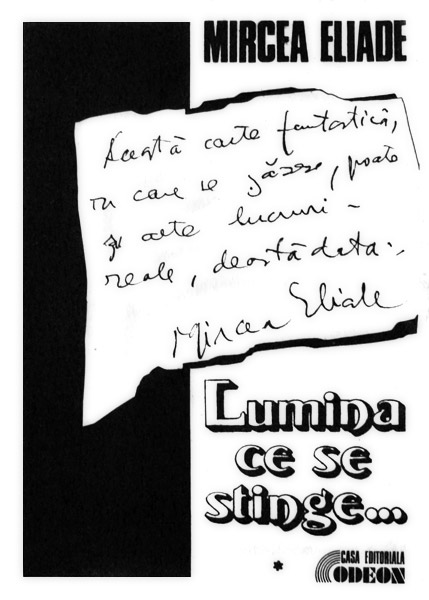 MIRCEA ELIADE
Această carte fantastică,
în care se găsesc, poate
și alte lucruri –
reale, deastădată...
Mircea Eliade
Lumina
ce se
stinge...
*
CASA EDITORIALA
ODEON